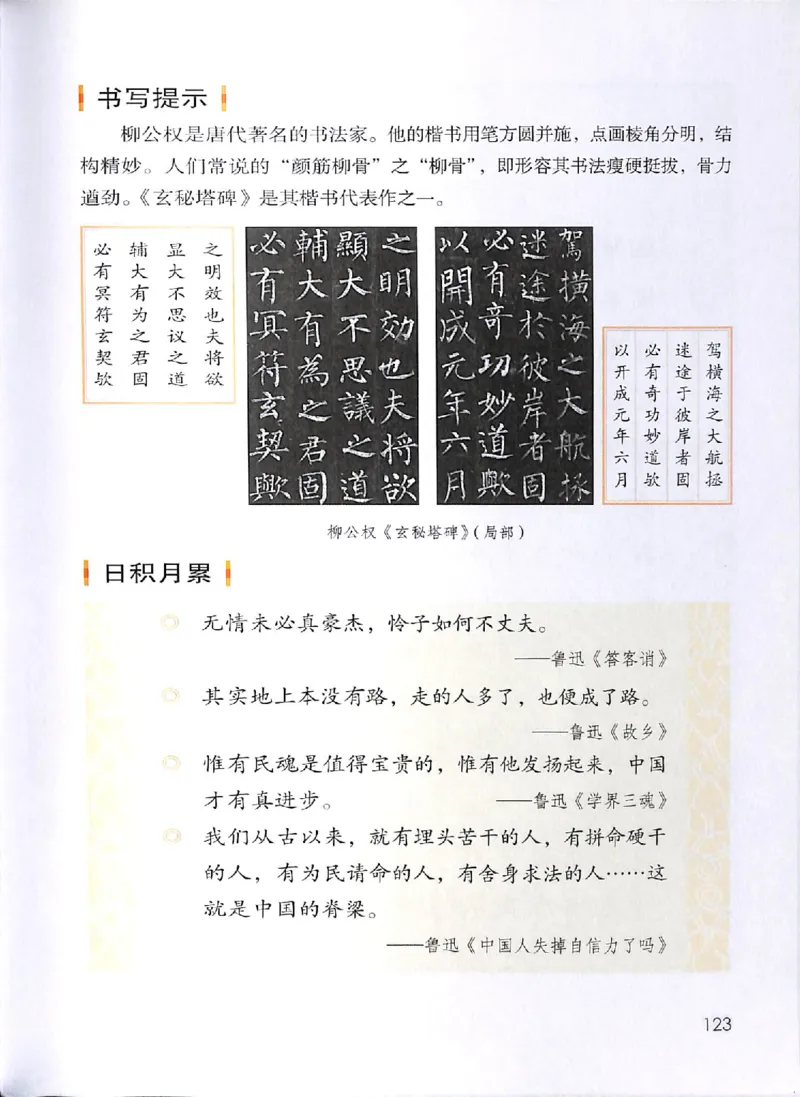 书写提示
柳公权是唐代著名的书法家。他的楷书用笔方圆并施，点画棱角分明，结
构精妙。人们常说的“颜筋柳骨”之“柳骨”，即形容其书法瘦硬挺拔，骨力
遒劲。《玄秘塔碑》是其楷书代表作之一。
之明效也夫将欲
显大不思议之道
辅大有为之君固
必有冥符玄契欤
之明效也夫将欲
顯大不思議之道
輔大有為之君固
必有冥符玄契歟
駕橫海之大航拯
迷途於彼岸者固
必有奇功妙道歟
以開成元年六月
驾横海之大航拯
迷途于彼岸者固
必有奇功妙道欤
以开成元年六月
柳公权《玄秘塔碑》（局部）
日积月累
◎ 无情未必真豪杰，怜子如何不丈夫。
——鲁迅《答客诮》
◎ 其实地上本没有路，走的人多了，也便成了路。
——鲁迅《故乡》
◎ 惟有民魂是值得宝贵的，惟有他发扬起来，中国
才有真进步。 ——鲁迅《学界三魂》
◎ 我们从古以来，就有埋头苦干的人，有拼命硬干
的人，有为民请命的人，有舍身求法的人……这
就是中国的脊梁。
——鲁迅《中国人失掉自信力了吗》
123